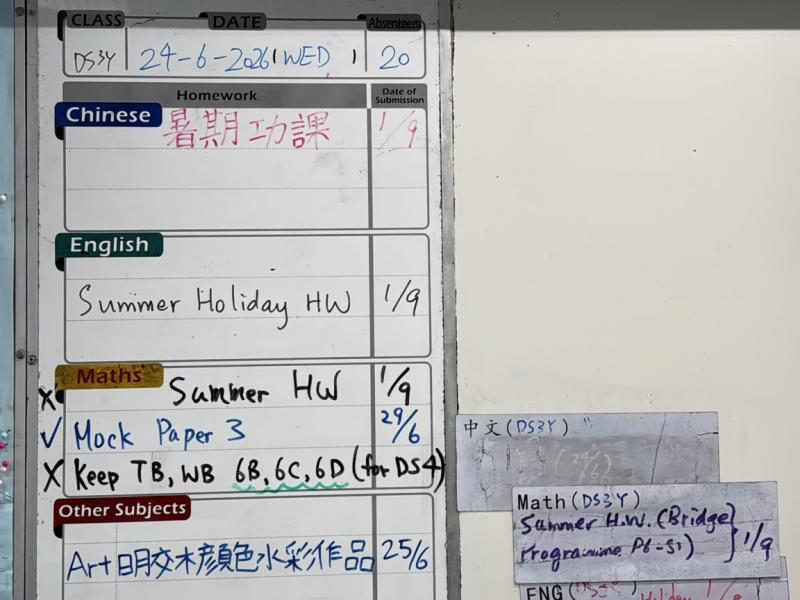 CLASS DATE Absentee(s)
DS3Y 24-6-2026 (WED) 20
Homework Date of Submission
Chinese
暑期功課 1/9
English
Summer Holiday HW 1/9
Maths
X Summer HW 1/9
✓ Mock Paper 3 29/6
X Keep TB, WB 6B, 6C, 6D (for DS4)
Other Subjects
Art 明交木顏色水彩作品 25/6
中文(DS3Y)
(24/6)
Math(DS3Y)
Summer H.W. (Bridge
Programme P6-S1) } 1/9
ENG( Holiday 1/9